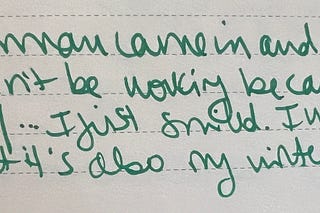 man came in and
n't be working beca
... I just smiled. I
it's also my winte